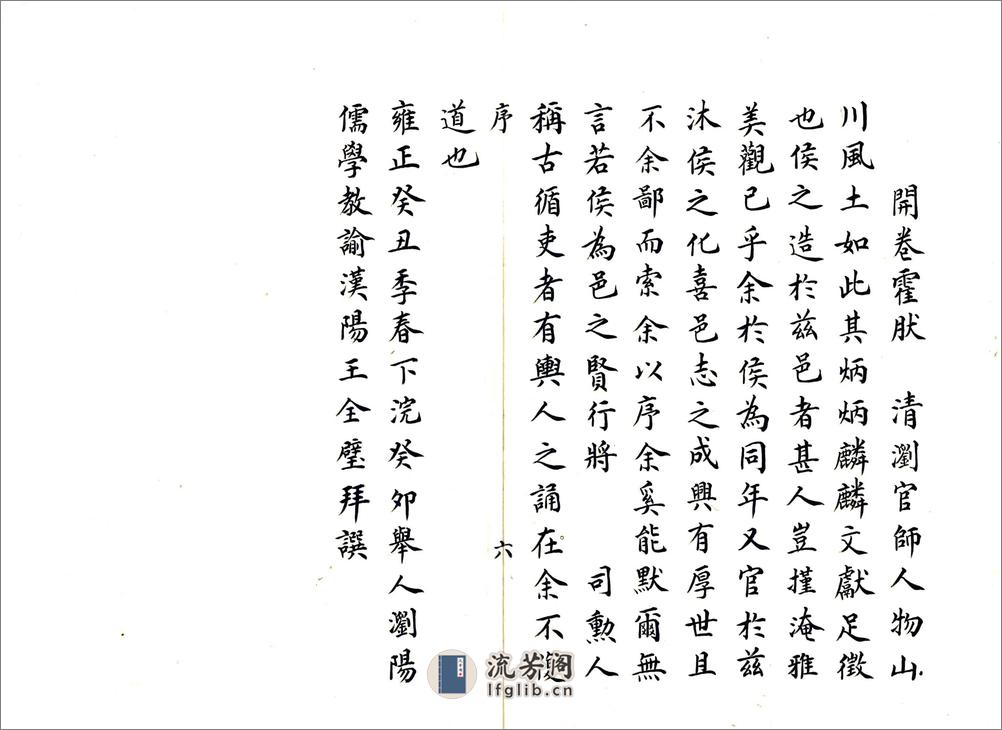 開卷霍肰 清瀏官師人物山
川風土如此其炳炳麟麟文獻足徵
也侯之造於兹邑者甚人豈瑾淹雅
美觀已乎余於侯為同年又官於兹
沐侯之化喜邑志之成興有厚世且
不余鄙而索余以序余奚能默爾無
言若侯為邑之賢行將 司勳人
稱古循吏者有輿人之誦在余不
序
六
道也
雍正癸丑季春下浣癸夘舉人瀏陽
儒學教諭漢陽王全璧拜譔
流芳阁
lfglib.cn